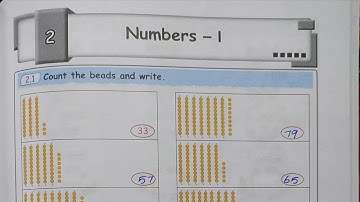 2
Numbers – 1
2.1 Count the beads and write.
33
79
57
65